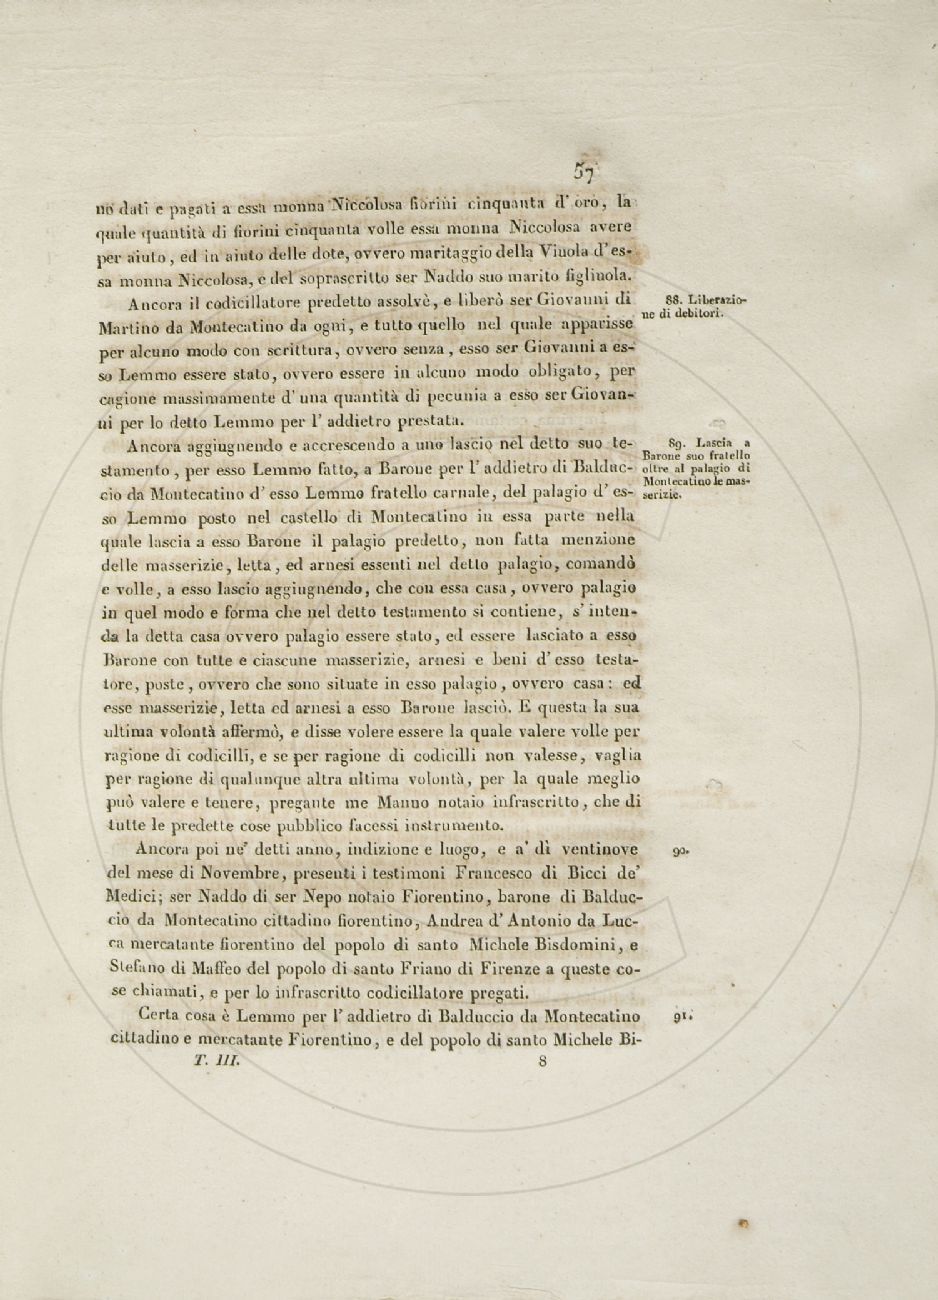 57
no dati e pagati a essa monna Niccolosa fiorini cinquanta d' oro, la
quale quantità di fiorini cinquanta volle essa monna Niccolosa avere
per aiuto, ed in aiuto delle dote, ovvero maritaggio della Viuola d' es-
sa monna Niccolosa, e del soprascritto ser Naddo suo marito figliuola.
Ancora il codicillatore predetto assolvè, e liberò ser Giovanni di
88. Liberazio-
ne di debitori.
Martino da Montecatino da ogni, e tutto quello nel quale apparisse
per alcuno modo con scrittura, ovvero senza, esso ser Giovanni a es-
so Lemmo essere stato, ovvero essere in alcuno modo obligato, per
cagione massimamente d' una quantità di pecunia a esso ser Giovan-
ni per lo detto Lemmo per l' addietro prestata.
Ancora aggiugnendo e accrescendo a uno lascio nel detto suo te-
89. Lascia a
Barone suo fratello
oltre al palagio di
Montecatino le mas-
serizie.
stamento, per esso Lemmo fatto, a Barone per l' addietro di Balduc-
cio da Montecatino d' esso Lemmo fratello carnale, del palagio d' es-
so Lemmo posto nel castello di Montecatino in essa parte nella
quale lascia a esso Barone il palagio predetto, non fatta menzione
delle masserizie, letta, ed arnesi essenti nel detto palagio, comandò
e volle, a esso lascio aggiugnendo, che con essa casa, ovvero palagio
in quel modo e forma che nel detto testamento si contiene, s' inten-
da la detta casa ovvero palagio essere stato, ed essere lasciato a esso
Barone con tutte e ciascune masserizie, arnesi e beni d' esso testa-
tore, poste, ovvero che sono situate in esso palagio, ovvero casa: ed
esse masserizie, letta ed arnesi a esso Barone lasciò. E questa la sua
ultima volontà affermò, e disse volere essere la quale valere volle per
ragione di codicilli, e se per ragione di codicilli non valesse, vaglia
per ragione di qualunque altra ultima volontà, per la quale meglio
può valere e tenere, pregante me Manno notaio infrascritto, che di
tutte le predette cose pubblico facessi instrumento.
Ancora poi ne' detti anno, indizione e luogo, e a' dì ventinove
90.
del mese di Novembre, presenti i testimoni Francesco di Bicci de'
Medici; ser Naddo di ser Nepo notaio Fiorentino, barone di Balduc-
cio da Montecatino cittadino fiorentino, Andrea d' Antonio da Luc-
ca mercatante fiorentino del popolo di santo Michele Bisdomini, e
Stefano di Maffeo del popolo di santo Friano di Firenze a queste co-
se chiamati, e per lo infrascritto codicillatore pregati.
Certa cosa è Lemmo per l' addietro di Balduccio da Montecatino
91.
cittadino e mercatante Fiorentino, e del popolo di santo Michele Bi-
T. III.
8